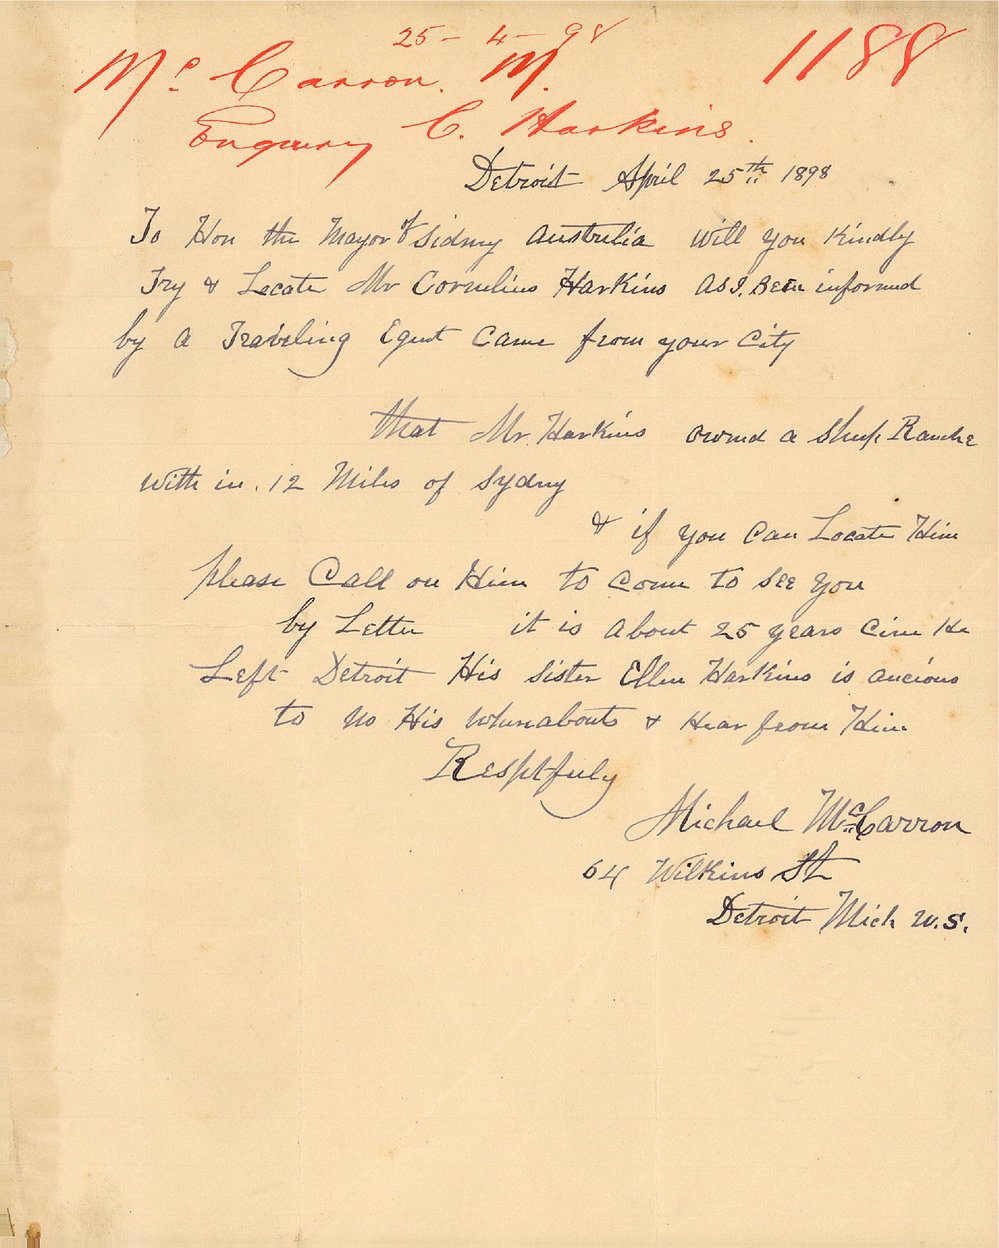 25-4-98
McCarron. M. 1188
Enquiry C. Harkins.
Detroit April 25th 1898
To Hon the Mayor of Sidny Australia Will you Kindly
Try & Locate Mr Cornelius Harkins As I. Been informed
by a Traveling Egent Came from your City
that Mr. Harkins owned a Sheep Ranche
With in. 12 Miles of Sydny
& if you Can Locate Him
please Call on Him to Come to See you
by Letter it is About 25 years Cinc He
Left Detroit His Sister Ellen Harkins is ancious
to No His Whereabouts & Hear from Him
Resptfuly
Michael McCarron
64 Wilkins St
Detroit Mich U.S.